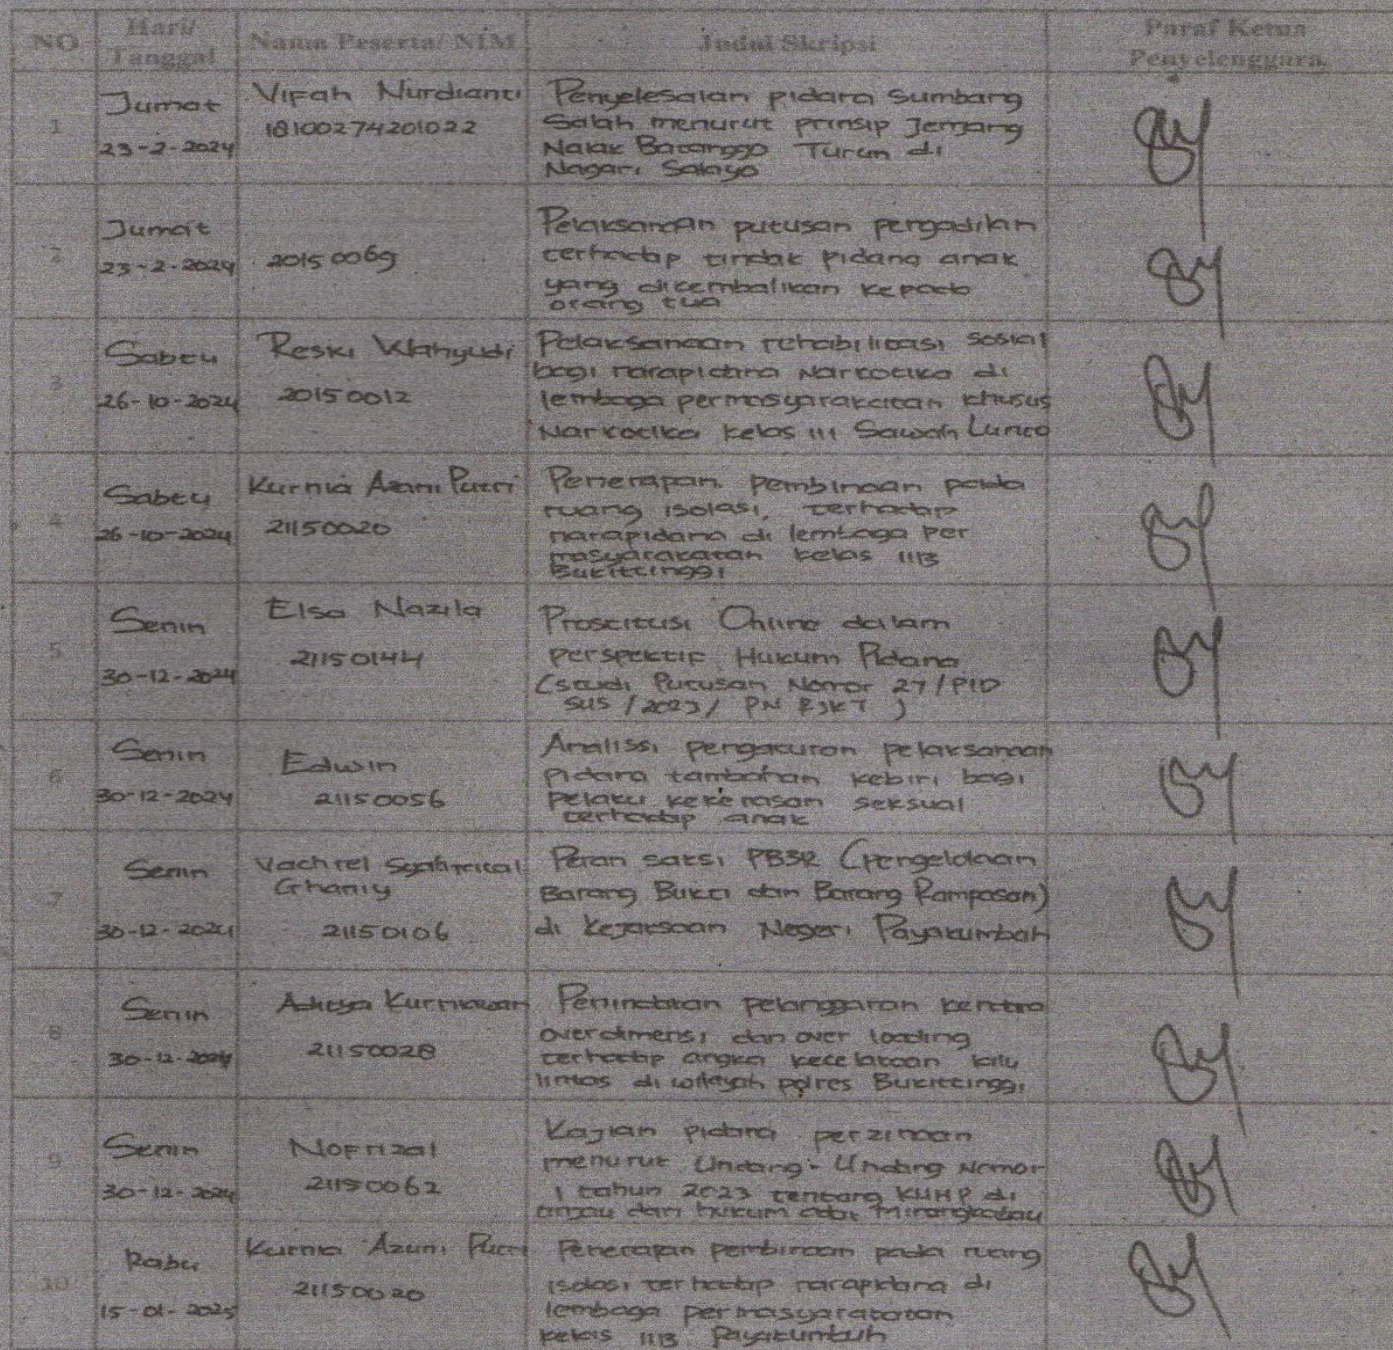 NO
Hari/
Tanggal
Nama Peserta/ NIM
Judul Skripsi
Paraf Ketua
Penyelenggara
1
Jumat
23-2-2024
Vipah Nurdianti
18100274201022
Penyelesaian pidana Sumbang
Salah menurut prinsip Jenjang
Naiak Batanggo Turun di
Nagari Salayo
2
Jumat
23-2-2024
20150069
Pelaksanaan putusan pengadilan
terhadap tindak pidana anak
yang dikembalikan kepada
orang tua
3
Sabtu
26-10-2024
Reski Wahyudi
20150012
Pelaksanaan rehabilitasi sosial
bagi narapidana Narkotika di
lembaga permasyarakatan khusus
Narkotika kelas III Sawah Lunto
4
Sabtu
26-10-2024
Kurnia Azani Putri
21150020
Penerapan pembinaan pada
ruang isolasi, terhadap
narapidana di lembaga per
masyarakatan kelas IIB
Bukittinggi
5
Senin
30-12-2024
Elsa Nazila
21150144
Prostitusi Online dalam
perspektif Hukum Pidana
(studi Putusan Nomor 27/PID
SUS /2023/ PN BJKT )
6
Senin
30-12-2024
Edwin
21150056
Analissi pengaturan pelaksanaan
pidana tambahan kebiri bagi
pelaku kekerasan seksual
terhadap anak
7
Senin
30-12-2024
Vachrel
Ghaniy
21150106
Peran saksi PB3R (pengelolaan
Barang Bukti dan Barang Rampasan)
di Kejaksaan Negeri Payakumbah
8
Senin
30-12-2024
Aditya Kurniawan
21150028
Penindakan pelanggaran
overdimensi dan over loading
terhadap angka kecelakaan lalu
lintas di wilayah polres Bukittinggi
9
Senin
30-12-2024
Nofrizal
21150062
Kajian pidana perzinaan
menurut Undang-Undang Nomor
1 tahun 2023 tentang KUHP di
dan hukum adat Minangkabau
10
Rabu
15-01-2025
Kurnia Azuni Putri
21150020
Penerapan pembinaan pada ruang
isolasi terhadap narapidana di
lembaga permasyarakatan
kelas IIB Payakumbuh